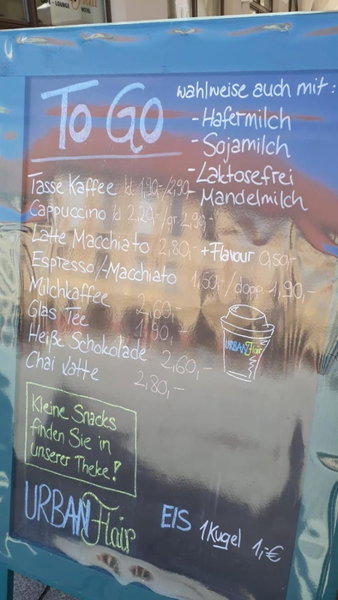 LOUNGE
To Go
wahlweise auch mit:
- Hafermilch
- Sojamilch
- Laktosefrei
Mandelmilch
Tasse Kaffee kl. 1,90,-/2,90,-
Cappuccino kl. 2,20,-/gr. 2,90,-
Latte Macchiato 2,80,- + Flavour 0,50,-
Espresso/-Macchiato 1,50,-/dopp. 1,90,-
Milchkaffee 2,60,-
Glas Tee 1,80,-
Heiße Schokolade 2,60,-
Chai Latte 2,80,-
URBAN Flair
Kleine Snacks
finden Sie in
unserer Theke!
URBAN Flair
EIS 1 Kugel 1,-€